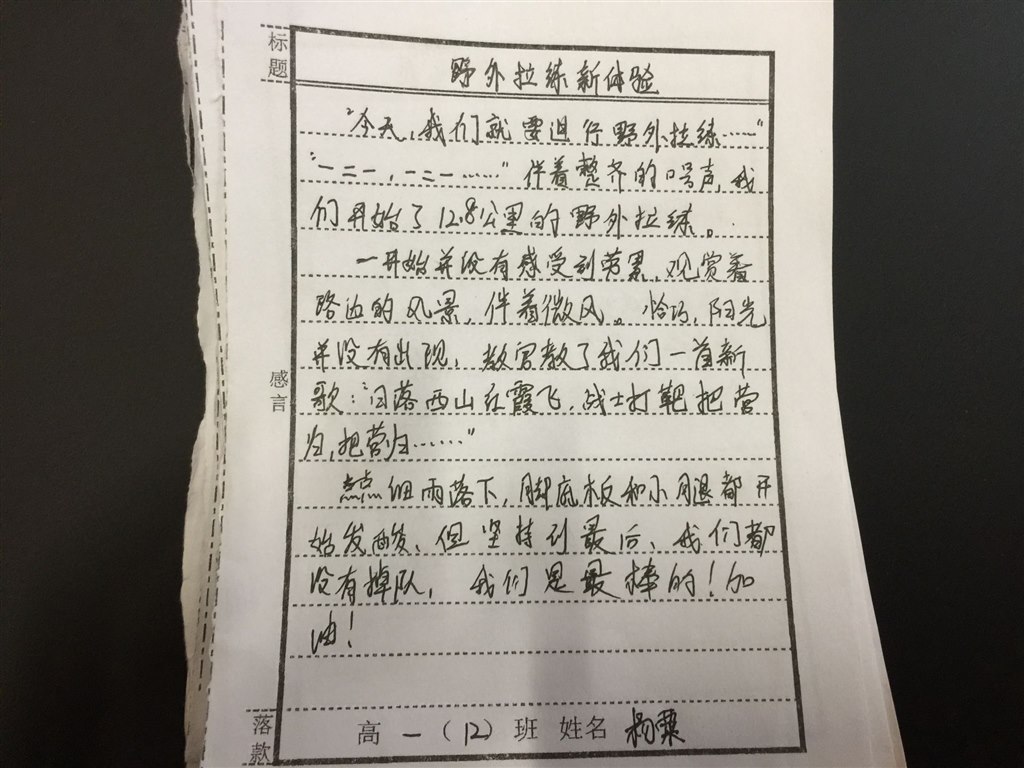 标题
野外拉练新体验
"今天,我们就要进行野外拉练……"
"一二一,一二一……"伴着整齐的口号声,我
们开始了12.8公里的野外拉练。
一开始并没有感受到劳累,观赏着
路边的风景,伴着微风。恰巧,阳光
并没有出现,教官教了我们一首新
感言
歌:"日落西山红霞飞,战士打靶把营
归,把营归……"
点点细雨落下,脚底板和小腿都开
始发酸,但坚持到最后,我们都
没有掉队,我们是最棒的!加
油!
落款
高一(12)班 姓名 杨粟